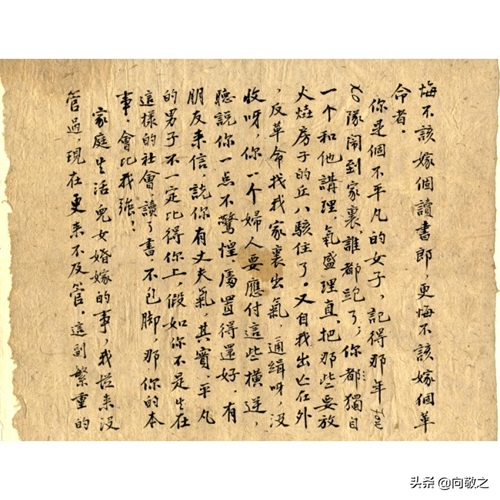 悔不該嫁個讀書郎，更悔不該嫁個革
命者。
你是個不平凡的女子，記得那年
隊開到家裏誰都跑了，你都獨自
一個和他講理，氣盛理直，把那些要放
火燒房子的丘八駭住了。又自我出亡在外
，反革命找我家裏出氣，通緝呀，沒
收呀，你一個婦人要應付這些橫逆，
聽說你一点不驚惶處置得還好，有
朋友来信，說你有丈夫氣，其實，平凡
的男子不一定比得你上，假如你不是生在
這樣的社會讀了書不包脚，那你的本
事，會比我強；
家庭生活兒女婚嫁的事，我從来没
管過現在更来不及管，這副繁重的
头条 @向敬之